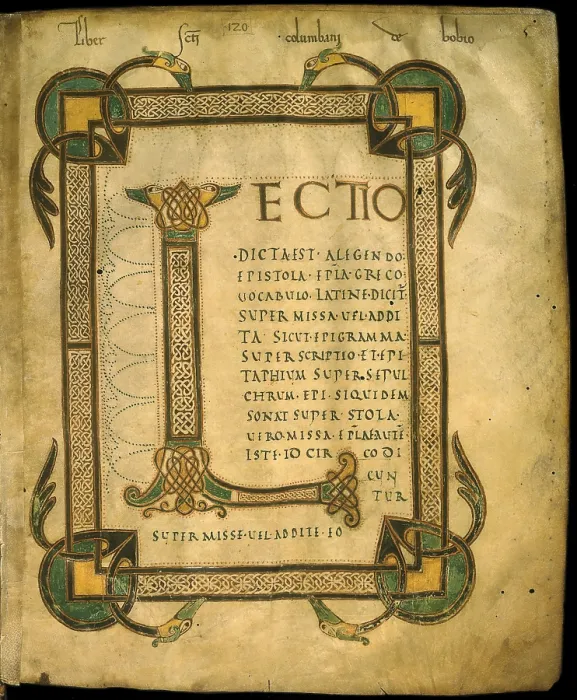 Liber sc̄ti 120 columbani de bobio
LECTIO
·DICTA EST· A LEGENDO·
EPISTOLA· EPL̄A· GRECO
UOCABULO· LATINE DICIT̄
SUPERMISSA· UEL ADDI
TA· SICUT· EPIGRAMMA·
SUPERSCRIPTIO· ET· EPI
TAPHIUM· SUPER· SEPUL
CHRUM· EPI· SIQUIDEM
SONAT SUPER· STOLA·
UERO· MISSA· EPL̄AE AUTĒ
ISTE· IDCIRCO DI
CUN
TUR
SUPERMISSE· UEL ADDITE· EO